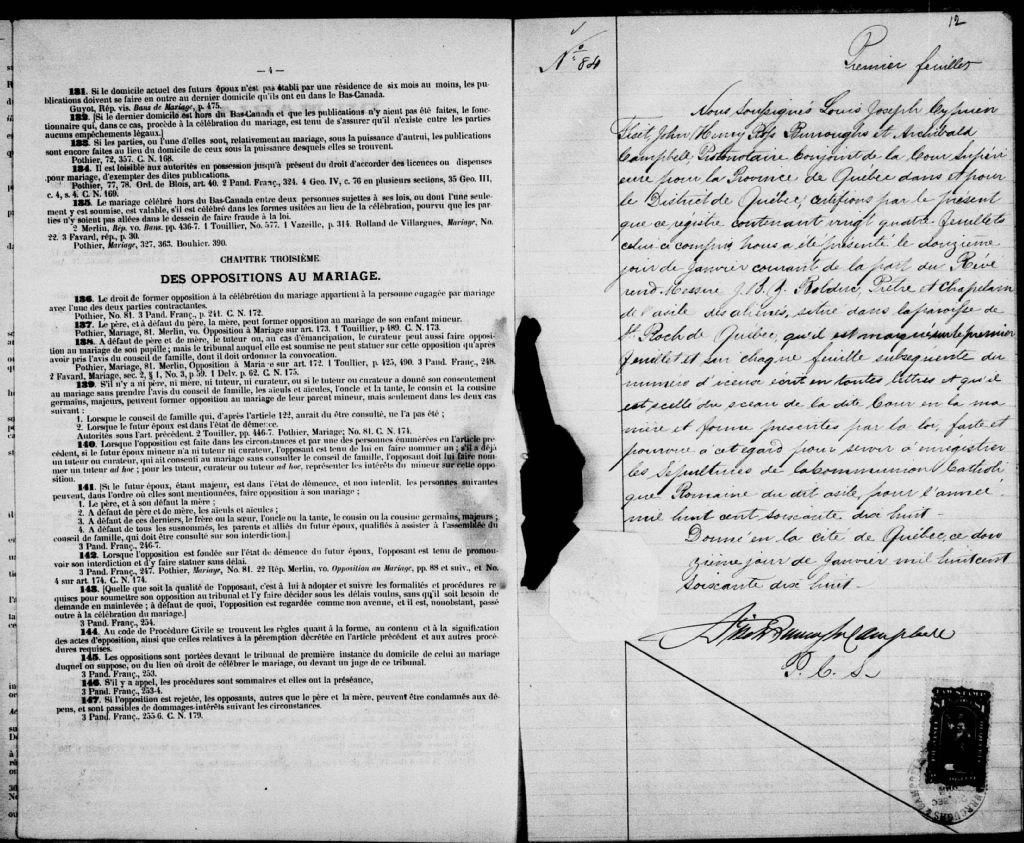 — 4 —
131. Si le domicile actuel des futurs époux n'est pas établi par une résidence de six mois au moins, les pu-
blications doivent se faire en outre au dernier domicile qu'ils ont eu dans le Bas-Canada.
Guyot, Rép. vis. Bans de Mariage, p. 475.
132. [Si le dernier domicile est hors du Bas-Canada et que les publications n'y aient pas été faites, le fonc-
tionnaire qui, dans ce cas, procède à la célébration du mariage, est tenu de s'assurer qu'il n'existe entre les parties
aucuns empêchements légaux.]
133. Si les parties, ou l'une d'elles, sont, relativement au mariage, sous la puissance d'autrui, les publications
sont encore faites au lieu du domicile de ceux sous la puissance desquels elles se trouvent.
Pothier, 72, 357. C. N. 168.
134. Il est loisible aux autorités en possession jusqu'à présent du droit d'accorder des licences ou dispenses
pour mariage, d'exempter des dites publications.
Pothier, 77, 78. Ord. de Blois, art. 40. 2 Pand. Franç., 324. 4 Geo. IV, c. 76 en plusieurs sections, 35 Geo. III,
c. 4, s. 4. C. N. 169.
135. Le mariage célébré hors du Bas-Canada entre deux personnes sujettes à ses lois, ou dont l'une seule-
ment y est soumise, est valable, s'il est célébré dans les formes usitées au lieu de la célébration, pourvu que les par-
ties n'y soient pas allées dans le dessein de faire fraude à la loi.
2 Merlin, Rép. vo. Bans. pp. 436-7. 1 Touillier, No. 577. 1 Vazeille, p. 314. Rolland de Villargues, Mariage, No.
22. 3 Favard, rép., p. 30.
Pothier, Mariage, 327, 363. Bouhier. 390.
CHAPITRE TROISIÈME.
DES OPPOSITIONS AU MARIAGE.
136. Le droit de former opposition à la célébrétion du mariage appartient à la personne engagée par mariage
avec l'une des deux parties contractantes.
Pothier, No. 81. 3 Pand. Franç., p. 241. C. N. 172.
137. Le père, et à défaut du père, la mère, peut former opposition au mariage de son enfant mineur.
Pothier, Mariage, 81. Merlin, vo. Opposition à Mariage sur art. 173. 1 Touillier, p 489. C. N. 173.
138. A défaut de père et de mère, le tuteur ou, au cas d'émancipation, le curateur peut aussi faire opposi-
tion au mariage de son pupille; mais le tribunal auquel elle est soumise ne peut statuer sur cette opposition qu'après
avoir pris l'avis du conseil de famille, dont il doit ordonner la convocation.
Pothier, Mariage, 81. Merlin, Opposition à Maria e sur art. 172. 1 Toullier, p. 425, 490. 3 Pand. Franç., 248.
2 Favard, Mariage, sec. 2, § 1, No. 3, p 59. 1 Delv. p. 62. C. N. 175.
139. S'il n'y a ni père, ni mère, ni tuteur, ni curateur, ou si le tuteur ou curateur a donné son consentement
au mariage sans prendre l'avis du conseil de famille, les aïeuls et aïeules, l'oncle et la tante, le cousin et la cousine
germains, majeurs, peuvent former opposition au mariage de leur parent mineur, mais seulement dans les deux cas
suivant :
1. Lorsque le conseil de famille qui, d'après l'article 122, aurait du être consulté, ne l'a pas été ;
2. Lorsque le futur époux est dans l'état de démence.
Autorités sous l'art. précédent. 2 Touiller, pp. 446-7. Pothier, Mariage; No. 81. C. N. 174.
140. Lorsque l'opposition est faite dans les circonstances et par une des personnes énumérées en l'article pré-
cédent, si le futur époux mineur n'a ni tuteur ni curateur, l'opposant est tenu de lui en faire nommer un ; s'il a déjà
un tuteur ou curateur, qui ait consenti au mariage sans consulter le conseil de famille, l'opposant doit lui faire nom-
mer un tuteur ad hoc ; pour les tuteur, curateur ou tuteur ad hoc, représenter les intérêts du mineur sur cette oppo-
sition.
141. [Si le futur époux, étant majeur, est dans l'état de démence, et non interdit, les personnes suivantes
peuvent, dans l'ordre où elles sont mentionnées, faire opposition à son mariage ;
1. Le père, et à son défaut la mère ;
2. A défaut de père et de mère, les aïeuls et aïeules ;
3. A défaut de ces derniers, le frère ou la sœur, l'oncle ou la tante, le cousin ou la cousine germains, majeurs ;
4. A défaut de tous les susnommés, les parents et alliés du futur époux, qualifiés à assister à l'assemblée du
conseil de famille, qui doit être consulté sur son interdiction.]
3 Pand. Franç., 246-7.
142. Lorsque l'opposition est fondée sur l'état de démence du futur époux, l'opposant est tenu de promou-
voir son interdiction et d'y faire statuer sans délai.
3 Pand. Franç., 247. Pothier, Mariage, No. 81. 22 Rép. Merlin, vo. Opposition au Mariage, pp. 88 et suiv., et No.
4 sur art. 174. C. N. 174.
143. [Quelque que soit la qualité de l'opposant, c'est à lui à adopter et suivre les formalités et procédures re-
quises pour soumettre son opposition au tribunal et l'y faire décider sous les délais voulus, sans qu'il soit besoin de
demande en mainlevée ; à défaut de quoi, l'opposition est regardée comme non avenue, et il est, nonobstant, passé
outre à la célébration du mariage.]
3 Pand. Franç., 254.
144. Au code de Procédure Civile se trouvent les règles quant à la forme, au contenu et à la signification
des actes d'opposition, ainsi que celles relatives à la péremption décrétée en l'article précédent et aux autres procé-
dures requises.
145. Les oppositions sont portées devant le tribunal de première instance du domicile de celui au mariage
duquel on suppose, ou du lieu où droit de célébrer le mariage, ou devant un juge de ce tribunal.
3 Pand. Franç., 253.
146. S'il y a appel, les procédures sont sommaires et elles ont la préséance,
3 Pand. Franç., 253-4.
147. Si l'opposition est rejetée, les opposants, autres que le père et la mère, peuvent être condamnés aux dé-
pens, et sont passibles de dommages-intérêts suivant les circonstances.
3 Pand. Franç., 255 6. C. N. 179.
12
No 84
Premier feuillet
Nous Soussignés Louis Joseph Cyprien
Fiset, John Henry Ross Burroughs et Archibald
Campbell Protonotaire Conjoint de la Cour Supéri
eure pour la Province de Québec dans et pour
le District de Québec, certifions par le présent
que ce régistre contenant vingt quatre feuillets
celui ci compris nous a été présenté le douzième
jour de janvier courant de la part du Révé
rend Messire J. B. Z. Bolduc, Prêtre et Chapelain
de l'asile des aliénés, situé dans la paroisse de
St Roch de Québec, qu'il est marqué sur le premier
feuillet et sur chaque feuille subsequente du
numéro d'iceux écrit en toutes lettres et qu'il
est scellé du sceau de la dite Cour en la ma
nière et forme presentes par la loi, faite et
pourvue à cet egard pour servir à enrégistrer
les sépultures de la Communion Catholi
que Romaine du dit asile, pour l'année
mil huit cent soixante dix huit.
Donné en la cité de Québec, ce dou
zième jour de Janvier mil huit cent
soixante dix huit.
Fiset Burroughs Campbell
P. C. S.